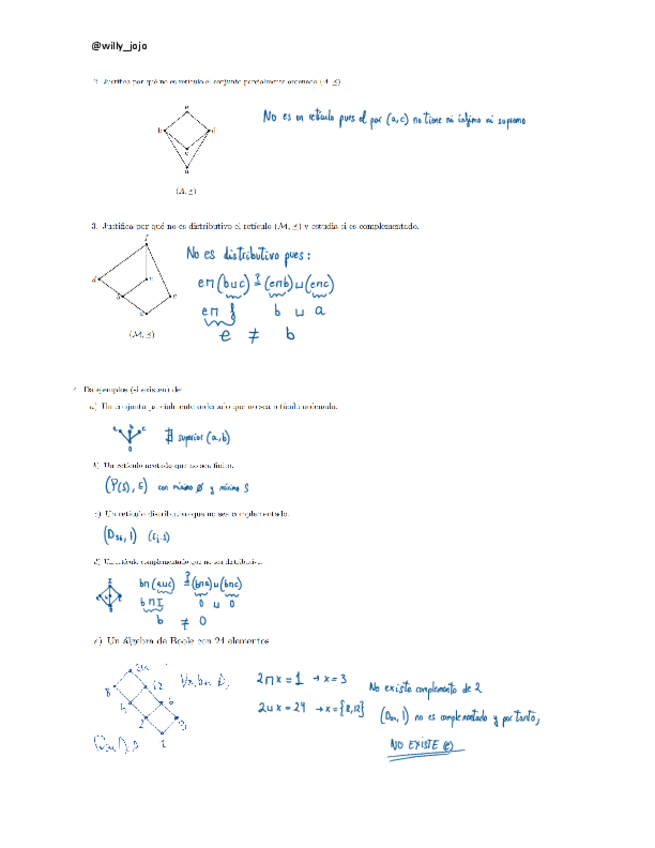 @willy_jojo
2. Justifica por qué no es retículo el conjunto parcialmente ordenado (A, ⪯)
No es un retículo pues el par (a,c) no tiene ni ínfimo ni supremo
(A, ⪯)
3. Justifica por qué no es distributivo el retículo (M, ⪯) y estudia si es complementado.
No es distributivo pues:
e⊓(b⊔c) ≟ (e⊓b)⊔(e⊓c)
e⊓ f b ⊔ a
e ≠ b
(M, ⪯)
4. Da ejemplos (si existen) de:
a) Un conjunto parcialmente ordenado que no sea retículo ordenado.
∄ superior (a,b)
b) Un retículo acotado que no sea finito.
(P(S), ⊆) con mínimo ∅ y máximo S
c) Un retículo distributivo que no sea complementado.
(D₃₆, |) (Ej.2)
d) Un retículo complementado que no sea distributivo.
b⊓(a⊔c) ≟ (b⊓a)⊔(b⊓c)
b⊓I 0 ⊔ 0
b ≠ 0
e) Un álgebra de Boole con 24 elementos
2⊓x = 1 → x = 3
No existe complemento de 2
2⊔x = 24 → x = {8,12}
no es complementado y por tanto,
NO EXISTE